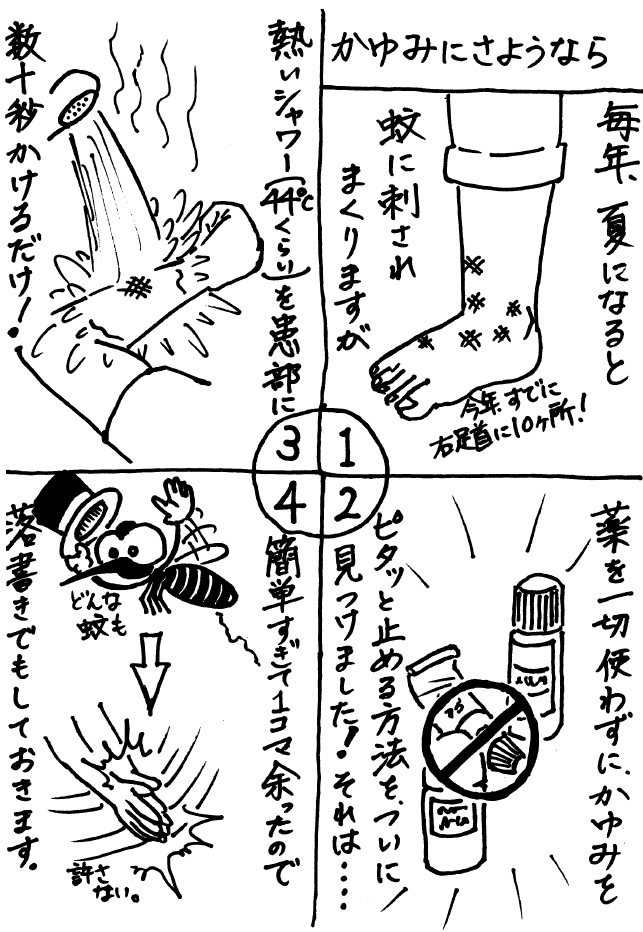 かゆみにさようなら
毎年、夏になると
蚊に刺され
まくりますが
今年すでに
右足首に10ヶ所!
1
薬を一切使わずに、かゆみを
ピタッと止める方法を、ついに
見つけました!それは‥‥
2
熱いシャワー(44℃くらい)を患部に
数十秒かけるだけ!
3
簡単すぎて1コマ余ったので
落書きでもしておきます。
どんな
蚊も
許さ
ない。
4